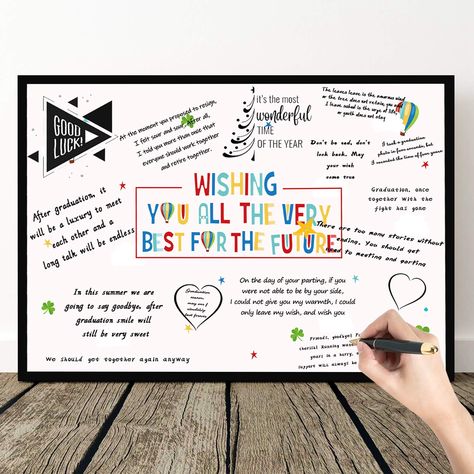 GOOD
LUCK!
At the moment you proposed to resign,
I felt sour and sour after all,
I told you more than once that
everyone should work together
and retire together.
it's the most
wonderful
TIME
OF THE YEAR
The leaves leave is the enormous wind
or the tree does not retain, you and
I have asked is the urge of life,
or youth does not stay
Don't be sad, don't
look back. May
your wish
come true
I took a graduation
photo in four minutes, but
I the time of four years
Graduation, once
together with the
fight has gone
After graduation, it
will be a luxury to meet
each other and a
long talk will be endless
WISHING
YOU ALL THE VERY
BEST FOR THE FUTURE
There are too many stories without
ending. You should get
used to meeting and parting
In this summer we are
going to say goodbye, after
graduation smile will
still be very sweet
Graduation
season
may our
friendship
last forever
On the day of your parting, if you
were not able to be by your side,
I could not give you my warmth, I could
only leave my wish, and wish you
Friends, goodbye!
cherish!
years in a
support will always be
We should get together again anyway